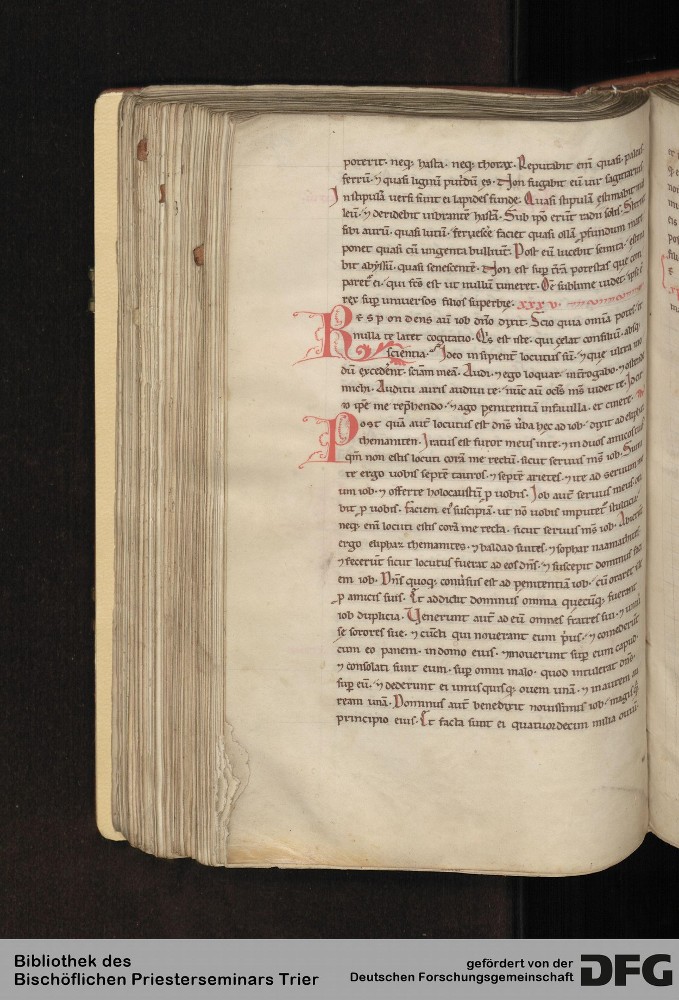 poterit. neq; hasta. neq; thorax. Reputabit eni quasi paleas
ferrū. ⁊ quasi lignū putridū es. Non fugabit eū uir sagittarius
In stipulā uersi sunt ei lapides funde. Quasi stipulā estimabit
leū. ⁊ deridebit uibrantē hastā. Sub ipo erūt radii solis.
sibi aurū. quasi lutū. feruescere faciet quasi ollā pfundum mare
ponet quasi cū ungenta bulliunt. Post eū lucebit semita.
bit abyssū. quasi senescentē. Non est sup trā potestas que com
paret ei. qui fcs est ut nullū timeret. Oē sublime uidet. ipse ē
rex sup uniuersos filios superbie. xxxv.
Respondens aū iob dno dixit. Scio quia omīa potes. ⁊
nulla te latet cogitatio. Qs est iste. qui celat consiliū. absq
scientia. Ideo insipient locutus sū. ⁊ que ultra mo
dū excedent sciam meā. Audi. ⁊ ego loquar. introgabo. ⁊ ostende
michi. Auditu auris audiui te. nūc aū ocls ms uidet te. Idcir
o ipe me rephendo. ⁊ ago penitentiā infauilla. et cinere.
Post quā aut locutus est dns uba hec ad iob. dixit ad eliphaz
themaniten. Iratus est furor meus inte. ⁊ in duos amicos tuos
qm non estis locuti corā me rectū. sicut seruus ms iob. Sumi
te ergo uobis septē tauros. ⁊ septē arietes. ⁊ ite ad seruum me
um iob. ⁊ offerte holocaustū p uobis. Iob aut seruus meus. ora
bit p uobis. faciem ei suscipiā. ut nō uobis imputet stulticia.
neq; enī locuti estis corā me recta. sicut seruus ms iob. Abierūt
ergo eliphaz themanites. ⁊ baldad suites. ⁊ sophar naamathites.
⁊ fecerūt sicut locutus fuerat ad eos dns. ⁊ suscepit dominus faci
em iob. Dns quoq; conusus est ad penitentiā iob. cū oraret ille
p amicis suis. Et addidit dominus omnia quecūq; fuerant
iob duplicia. Venerunt aut ad eū omnes fratres sui. ⁊ uniu
se sorores sue. ⁊ cuncti qui nouerant eum pus. ⁊ comederūt
cum eo panem. in domo eius. ⁊ mouerunt sup eum capud.
⁊ consolati sunt eum. sup omni malo. quod intulerat dns
sup eū. ⁊ dederunt ei unusquisq; ouem unā. ⁊ inaurem au
ream unā. Dominus aut benedixit nouissimis iob. magis q̄
principio eius. Et facta sunt ei quatuordecim milia ouiū.
Bibliothek des
Bischöflichen Priesterseminars Trier
gefördert von der
Deutschen Forschungsgemeinschaft
DFG